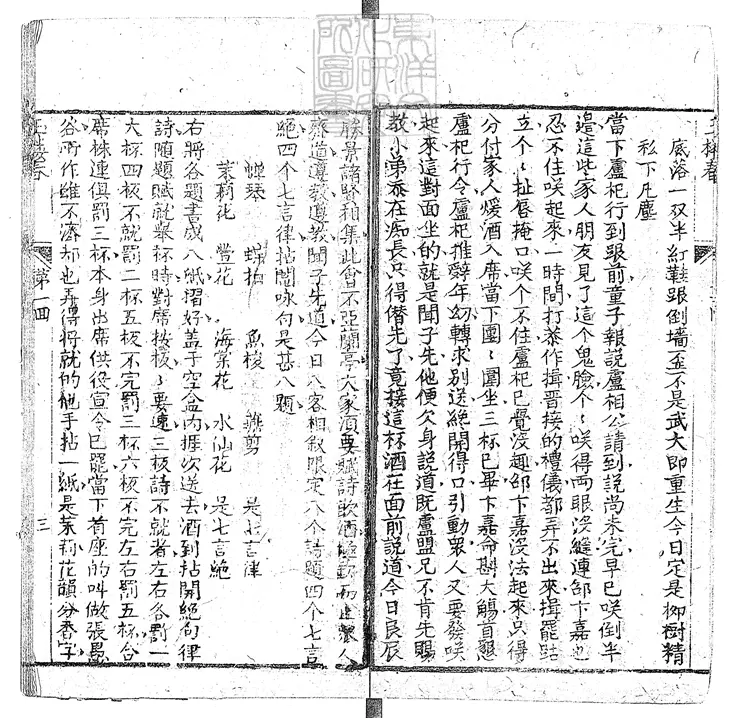 底落一双半紅鞋跟倒墻歪不是武大即重生今日定是柳樹精
私下凡塵
當下盧杞行到跟前童子報說盧相公請到說尚未完早已咲倒半
邉這些家人朋友見了這个鬼臉个〻咲得兩眼沒縫連郜卞嘉也
忍不住咲起來一時間打恭作揖晋接的禮儀都弄不出來揖罷跕
立个〻扯唇掩口咲个不住盧杞已覺沒趣郜卞嘉沒法起來只得
分付家人煖酒入席當下團〻圍坐三杯已畢卞嘉命斟大觴首懇
盧杞行令盧杞推辭年幼轉求别送絶開得口引動眾人又要發咲
起來這對面坐的就是聞子先他便欠身說道既盧盟兄不肯先賜
教小弟忝在痴長只得僭先了竟接這杯酒在面前說道今日良辰
勝景諸賢相集此會不亞蘭亭大家須要賦詩飲酒 眾人
齊道遵教遵教聞子先道今日八客相叙限定八个詩題四个七言
絶四个七言律拈鬮咏句是甚八題
蟬琴 蝶拍 魚梭 燕剪 是七言律
茉莉花 豐花 海棠花 水仙花 是七言絶
右將各題書成八紙摺好盖于空盒内挨次送去酒到拈開絶句律
詩随題賦就舉杯時對席按板〻要速三板詩不就者左右各罰一
六杯四板不就罰二杯五板不完罰三杯六板不完左右罰五杯合
席株連俱罰三杯本身出席供役宣令已罷當下首座的叫做張愚
谷所作雖不濟却也弄得將就的他手拈一紙是茉莉花韻分香字
第一回
三